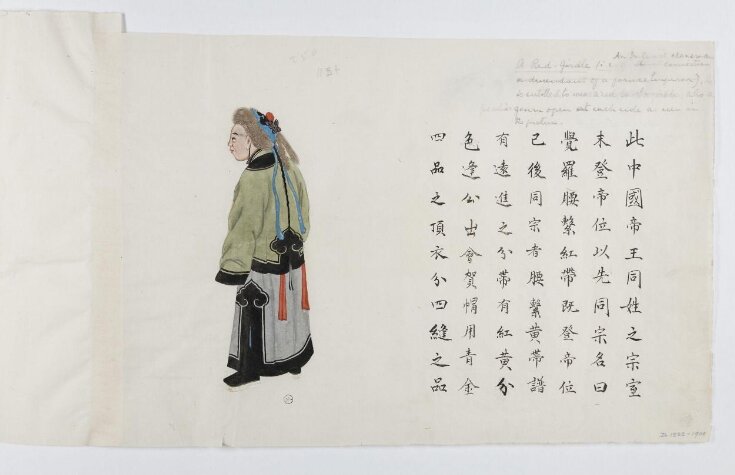 A Red-Girdle (i.e.
a descendant of a former Emperor),
is entitled to wear a red also a
gown open at each side as seen in
the picture.
此中國帝王同姓之宗室
未登帝位以先同宗名曰
覺羅腰繫紅帶既登帝位
已後同宗者腰繫黃帶譜
有遠進之分帶有紅黃分
色逢公出會賀帽用青金
四品之頂衣分四縫之品